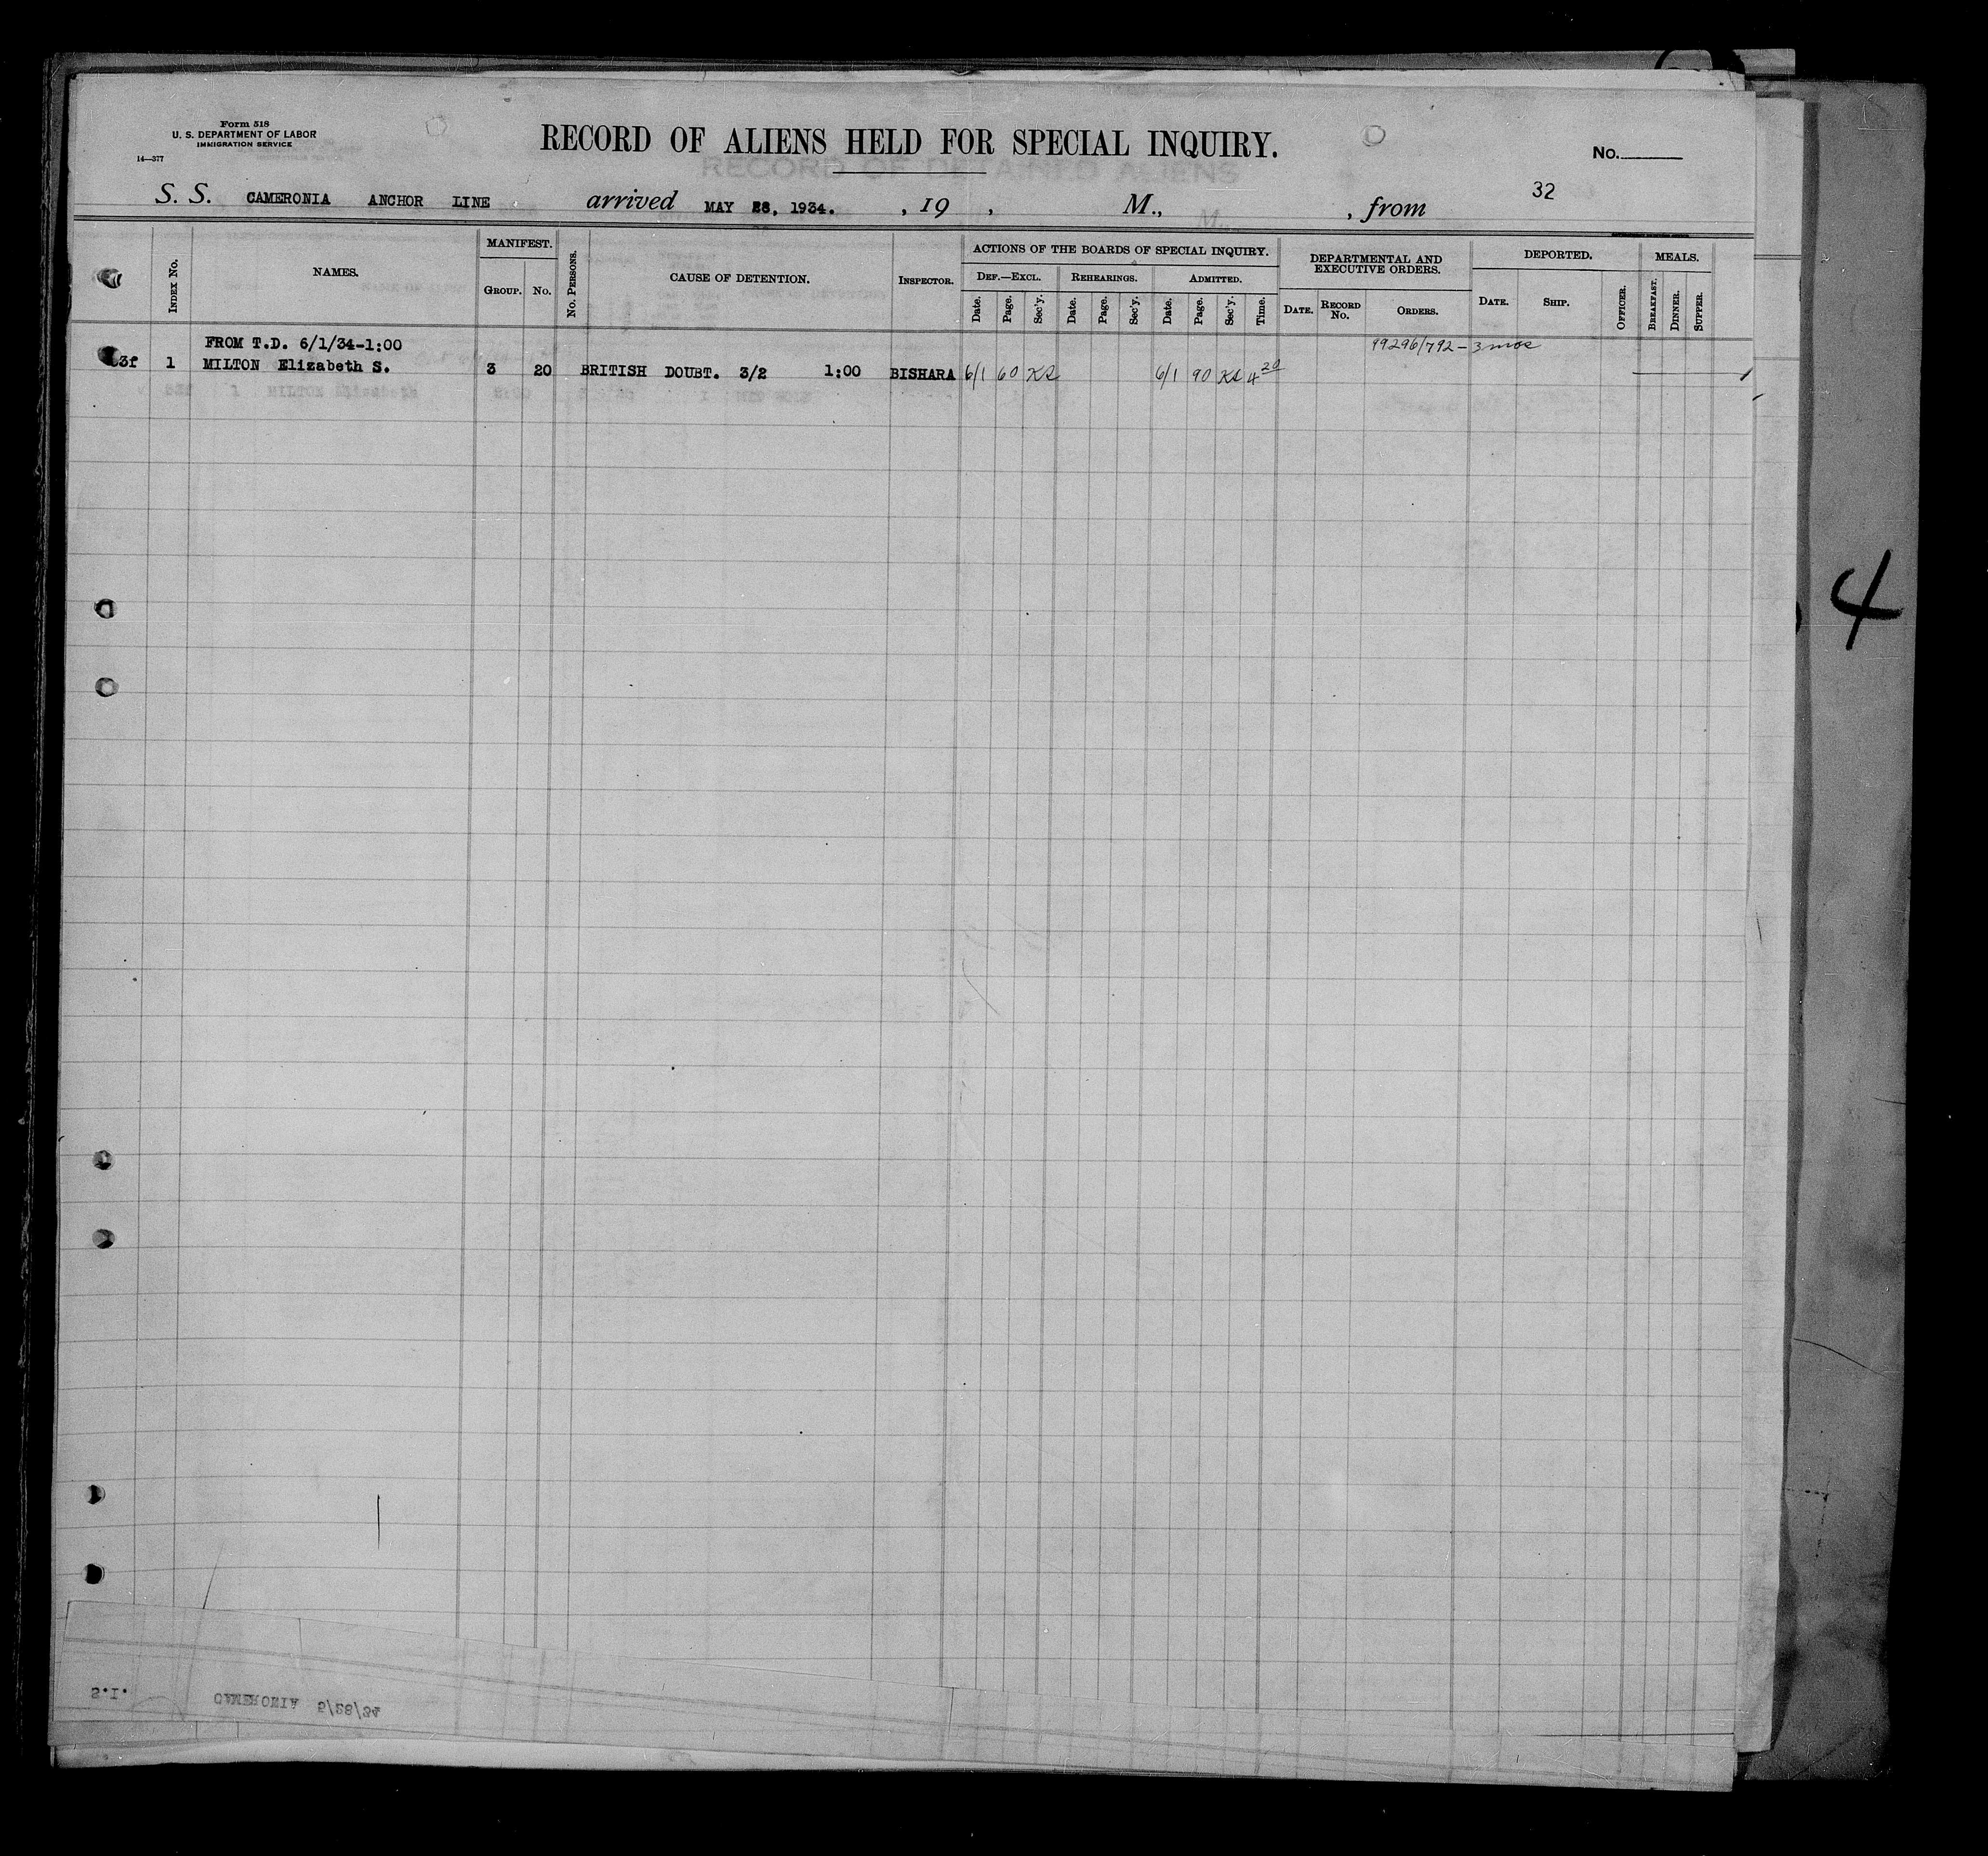 Form 518
U. S. DEPARTMENT OF LABOR
IMMIGRATION SERVICE
14—377
RECORD OF ALIENS HELD FOR SPECIAL INQUIRY.
RECORD OF DETAINED ALIENS
No.
32
S. S. CAMERONIA ANCHOR LINE arrived MAY 28, 1934. , 19 , M., , from
INDEX No. NAMES. MANIFEST. GROUP. No. No. PERSONS. CAUSE OF DETENTION. INSPECTOR. ACTIONS OF THE BOARDS OF SPECIAL INQUIRY. DEPARTMENTAL AND EXECUTIVE ORDERS. DEPORTED. MEALS.
DEF.—EXCL. REHEARINGS. ADMITTED.
Date. Page. Sec'y. Date. Page. Sec'y. Date. Page. Sec'y. Time. DATE. RECORD No. ORDERS. DATE. SHIP. OFFICER. BREAKFAST. DINNER. SUPPER.
FROM T.D. 6/1/34-1:00 99296/792 - 3 mos
3f 1 MILTON Elizabeth S. 3 20 BRITISH DOUBT. 3/2 1:00 BISHARA 6/1 60 6/1 90 4 20
4
S.I. CAMERONIA 5/28/34